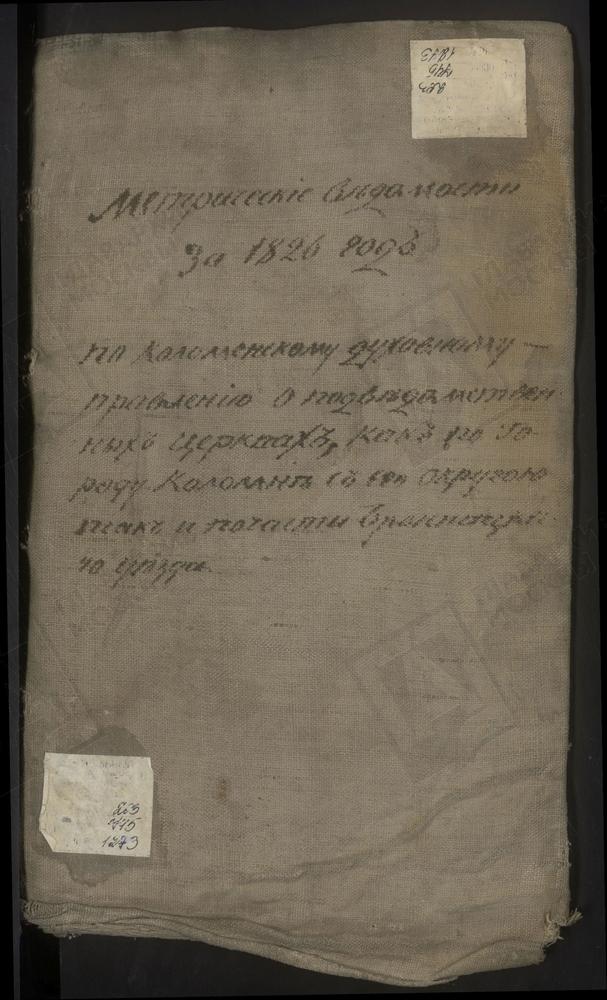 Метрическіе вѣдомости
За 1826 годъ
по Коломенскому духовному —
правленію о подвѣдомствен-
ныхъ церквахъ, какъ по Го-
роду Коломнѣ съ ея округою
такъ и по части Бронницка-
го уѣзда.
1273
745
203
745
1273